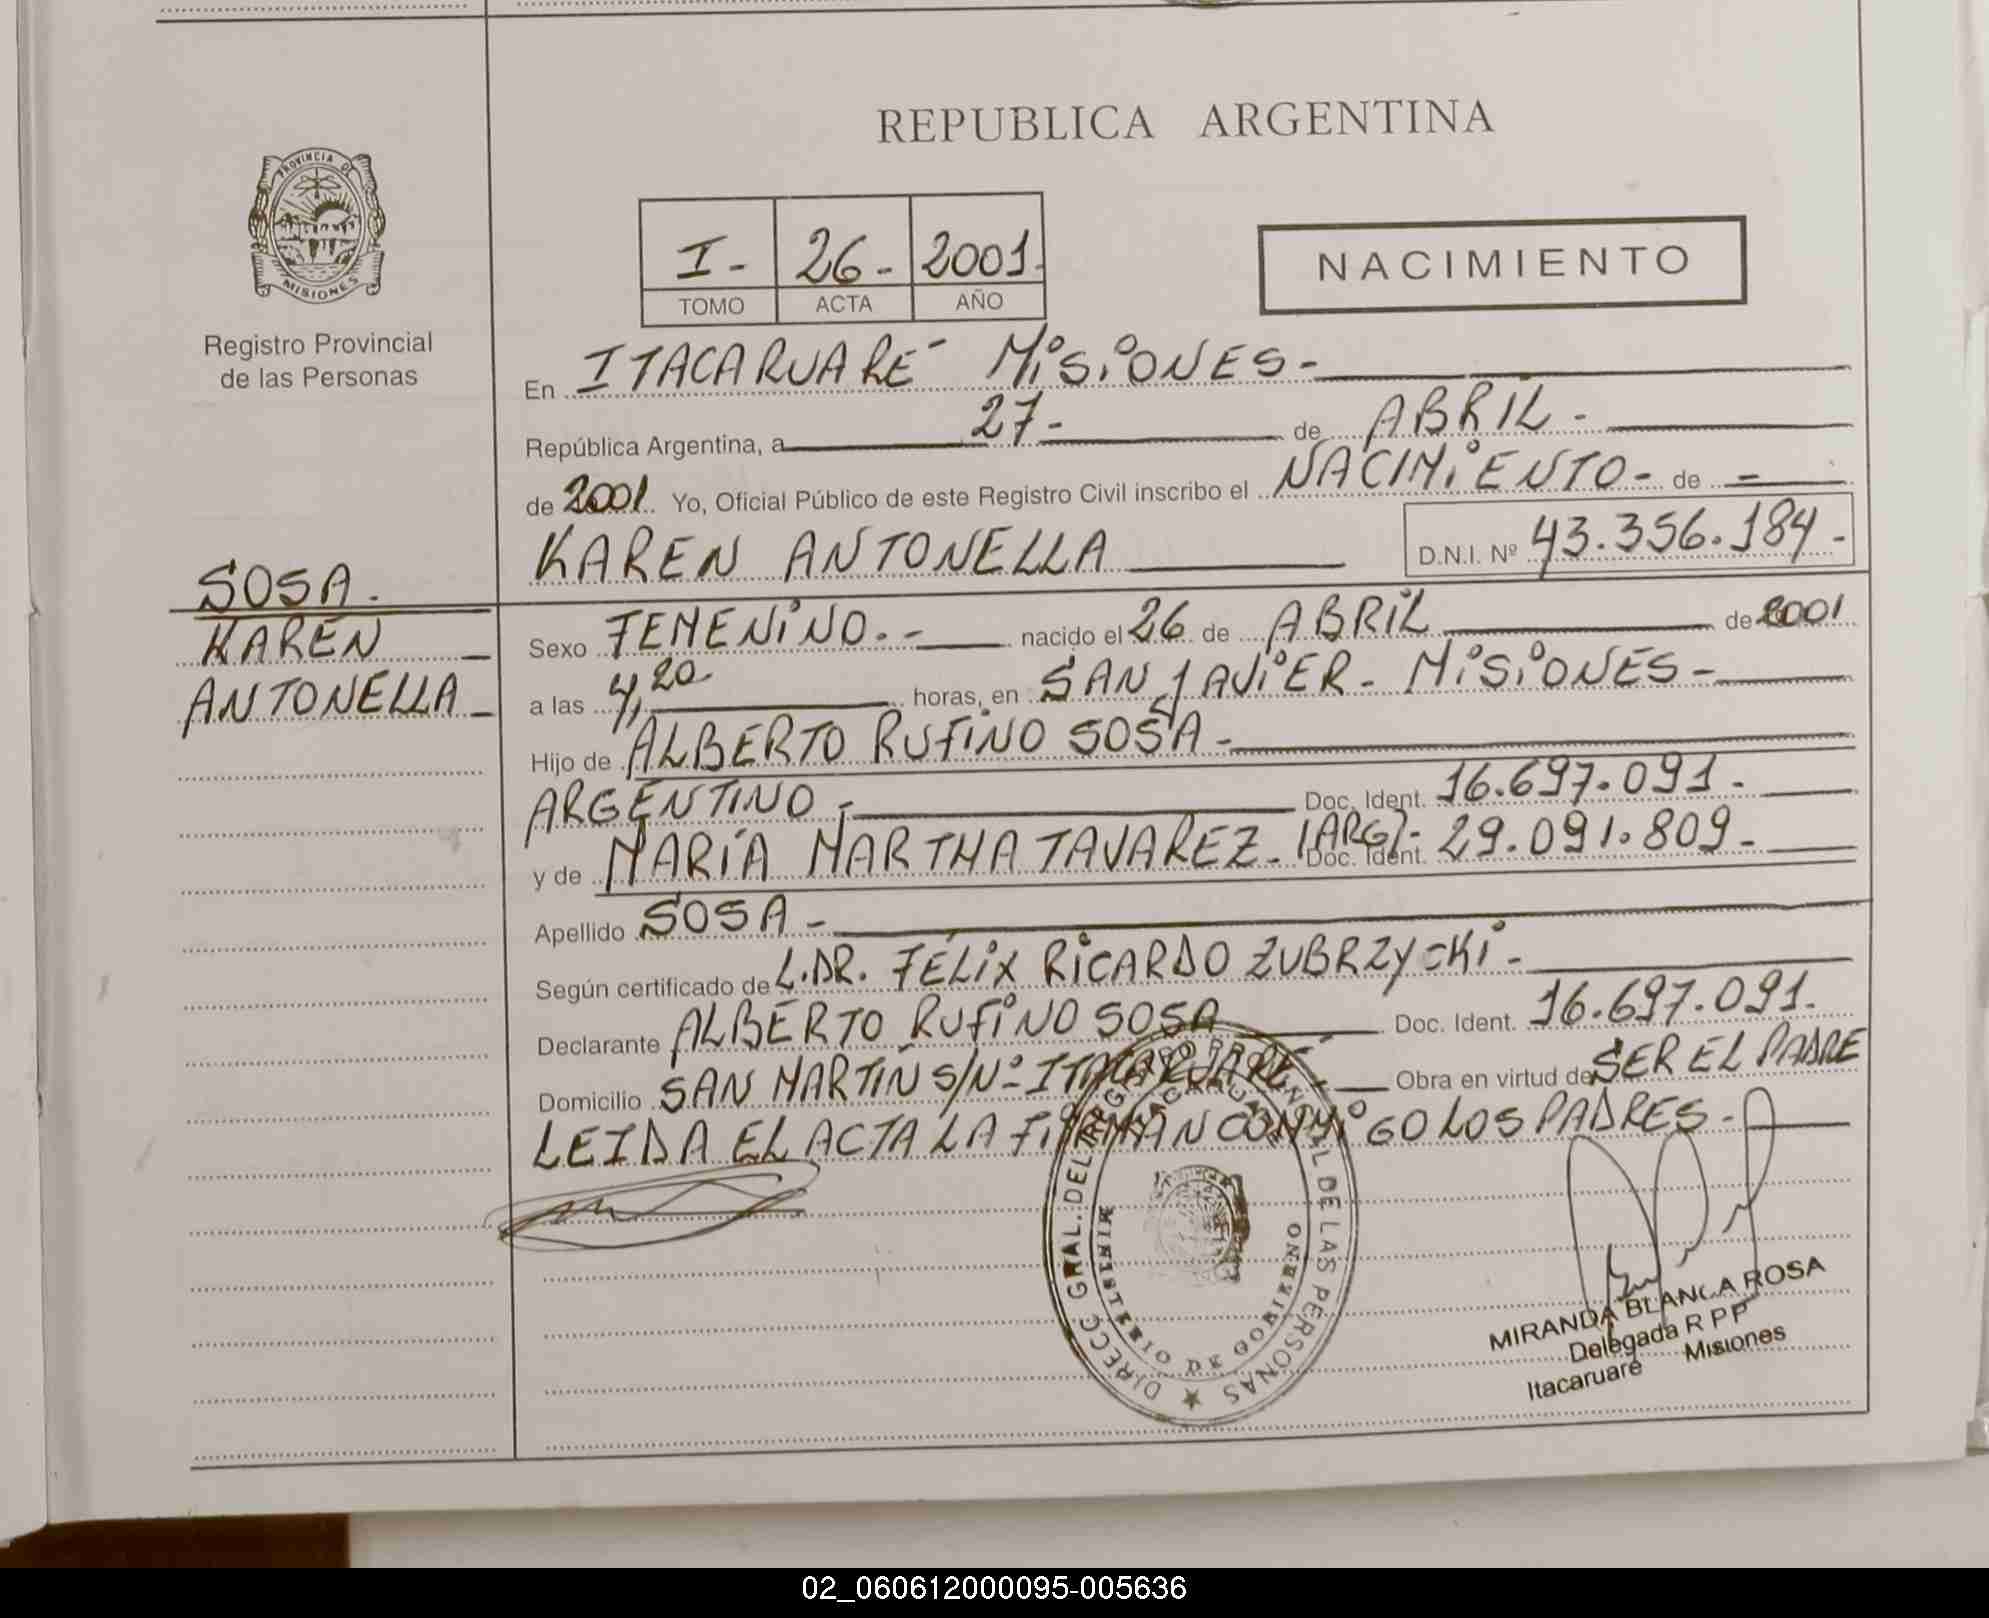 REPUBLICA ARGENTINA
PROVINCIA DE MISIONES
Registro Provincial
de las Personas
I- 26- 2001-
TOMO ACTA AÑO
NACIMIENTO
En ITACARUARE MISIONES-
República Argentina, a 27- de ABRIL-
de 2001 Yo, Oficial Público de este Registro Civil inscribo el NACIMIENTO- de -
KAREN ANTONELLA D.N.I. Nº 43.356.184-
SOSA.
KAREN
ANTONELLA
Sexo FEMENINO.- nacido el 26 de ABRIL de 2001
a las 4,20 horas, en SAN JAVIER- MISIONES-
Hijo de ALBERTO RUFINO SOSA-
ARGENTINO- Doc. Ident. 16.697.091-
y de MARÍA MARTHA TAVAREZ- (ARG)- Doc. Ident. 29.091.809-
Apellido SOSA-
Según certificado de L.DR. FÉLIX RICARDO ZUBRZYCKI-
Declarante ALBERTO RUFINO SOSA Doc. Ident. 16.697.091-
Domicilio SAN MARTIN S/Nº- ITACARUARE- Obra en virtud de SER EL PADRE
LEIDA EL ACTA LA FIRMAN CONMIGO LOS PADRES-
DIRECC GRAL. DEL REGISTRO PROVINCIAL DE LAS PERSONAS
MINISTERIO DE GOBIERNO
MIRANDA BLANCA ROSA
Delegada R P P
Itacaruaré Misiones
02_060612000095-005636